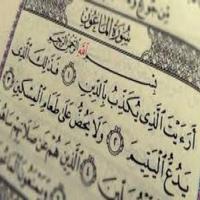 مِّن جُوعٍ
سُورَةُ المَاعُونِ
بِسْمِ اللَّهِ الرَّحْمَٰنِ الرَّحِيمِ
أَرَءَيْتَ الَّذِي يُكَذِّبُ بِالدِّينِ ١ فَذَٰلِكَ الَّذِي
يَدُعُّ الْيَتِيمَ ٢ وَلَا يَحُضُّ عَلَىٰ طَعَامِ الْمِسْكِينِ ٣
الَّذِينَ هُمْ عَن صَلَاتِهِمْ سَاهُونَ